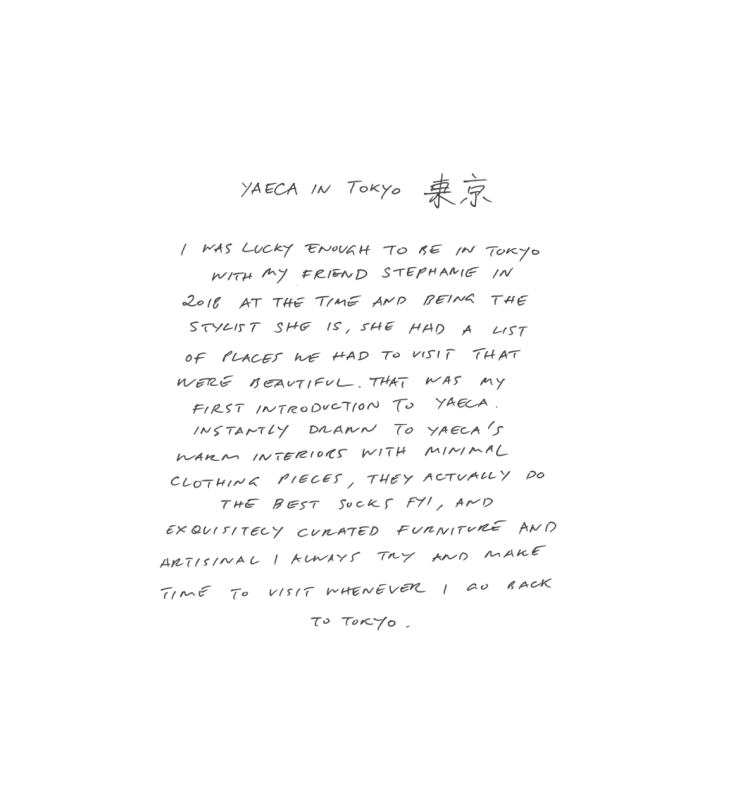 YAECA IN TOKYO 東京
I WAS LUCKY ENOUGH TO BE IN TOKYO
WITH MY FRIEND STEPHANIE IN
2018 AT THE TIME AND BEING THE
STYLIST SHE IS, SHE HAD A LIST
OF PLACES WE HAD TO VISIT THAT
WERE BEAUTIFUL. THAT WAS MY
FIRST INTRODUCTION TO YAECA.
INSTANTLY DRAWN TO YAECA'S
WARM INTERIORS WITH MINIMAL
CLOTHING PIECES, THEY ACTUALLY DO
THE BEST SOCKS FYI, AND
EXQUISITELY CURATED FURNITURE AND
ARTISINAL I ALWAYS TRY AND MAKE
TIME TO VISIT WHENEVER I GO BACK
TO TOKYO.